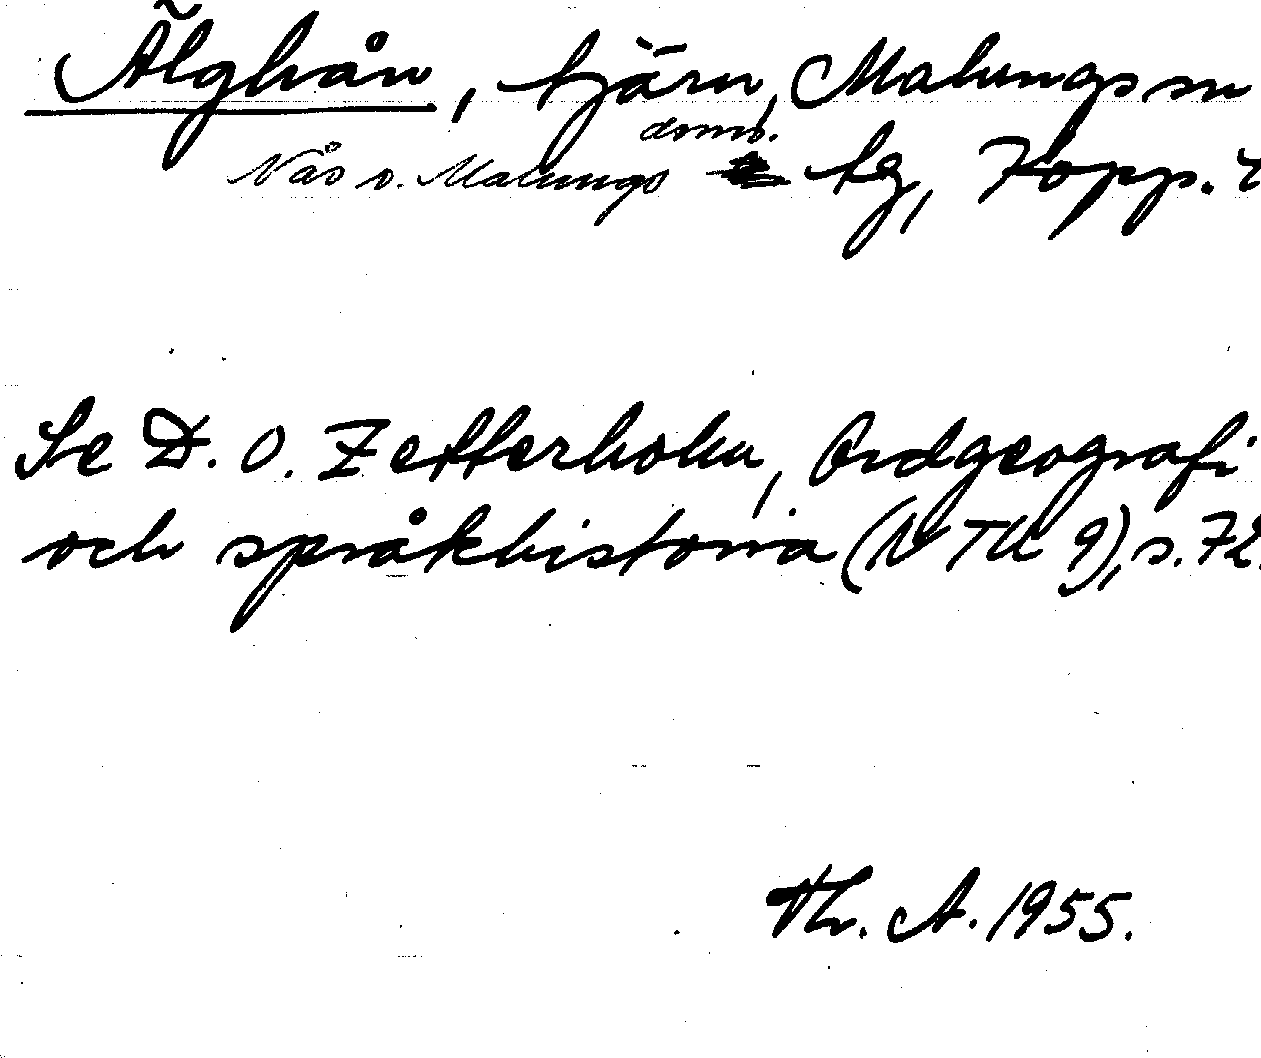 Älghån, tjärn, Malungs sn
Nås o. Malungs doms. tg, Kopp. l
Se D. O. Zetterholm, Ordgeografi
och språkhistoria (NTU 9), s. 72.
Th. A. 1955.